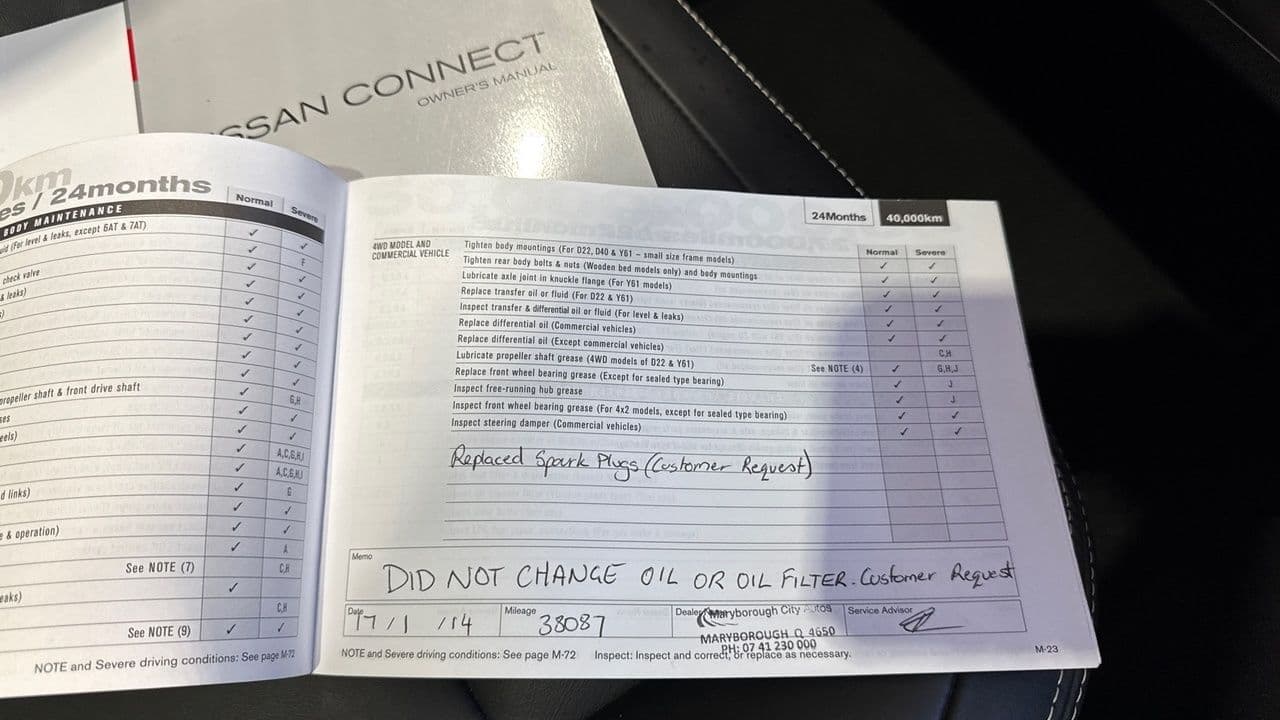 SSAN CONNECT
OWNER'S MANUAL
km
es / 24months
BODY MAINTENANCE
Normal Severe
uid (For level & leaks, except 6AT & 7AT) ✓ ✓
✓ F
check valve ✓ ✓
& leaks) ✓ ✓
s) ✓ ✓
✓ ✓
✓ ✓
✓ ✓
propeller shaft & front drive shaft ✓ G,H
ses ✓ ✓
eels) ✓ ✓
✓ A,C,G,H,I
✓ A,C,G,H,I
d links) ✓ G
✓ ✓
e & operation) ✓ ✓
✓ A
See NOTE (7) C,H
eaks) ✓
C,H
See NOTE (9) ✓ ✓
NOTE and Severe driving conditions: See page M-72
24Months 40,000km
4WD MODEL AND
COMMERCIAL VEHICLE
Normal Severe
Tighten body mountings (For D22, D40 & Y61 – small size frame models) ✓ ✓
Tighten rear body bolts & nuts (Wooden bed models only) and body mountings ✓ ✓
Lubricate axle joint in knuckle flange (For Y61 models) ✓ ✓
Replace transfer oil or fluid (For D22 & Y61) ✓ ✓
Inspect transfer & differential oil or fluid (For level & leaks) ✓ ✓
Replace differential oil (Commercial vehicles) ✓ ✓
Replace differential oil (Except commercial vehicles) C,H
Lubricate propeller shaft grease (4WD models of D22 & Y61) See NOTE (4) ✓ G,H,J
Replace front wheel bearing grease (Except for sealed type bearing) ✓ J
Inspect free-running hub grease ✓ J
Inspect front wheel bearing grease (For 4x2 models, except for sealed type bearing) ✓ ✓
Inspect steering damper (Commercial vehicles) ✓ ✓
Replaced Spark Plugs (Customer Request)
Memo
DID NOT CHANGE OIL OR OIL FILTER. Customer Request
Date 17/1/14 Mileage 38087 Dealer Maryborough City Autos Service Advisor
MARYBOROUGH Q 4650
PH: 07 41 230 000
NOTE and Severe driving conditions: See page M-72 Inspect: Inspect and correct, or replace as necessary.
M-23